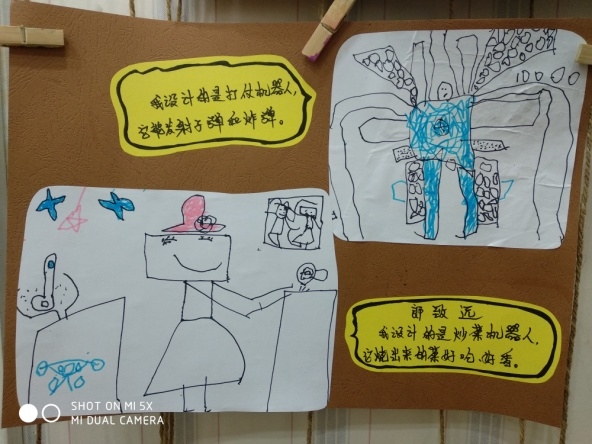 我设计的是打仗机器人,
它能发射子弹和炸弹。
10000
郎致远
我设计的是炒菜机器人,
它炒出来的菜好吃、好香。
SHOT ON MI 5X
MI DUAL CAMERA